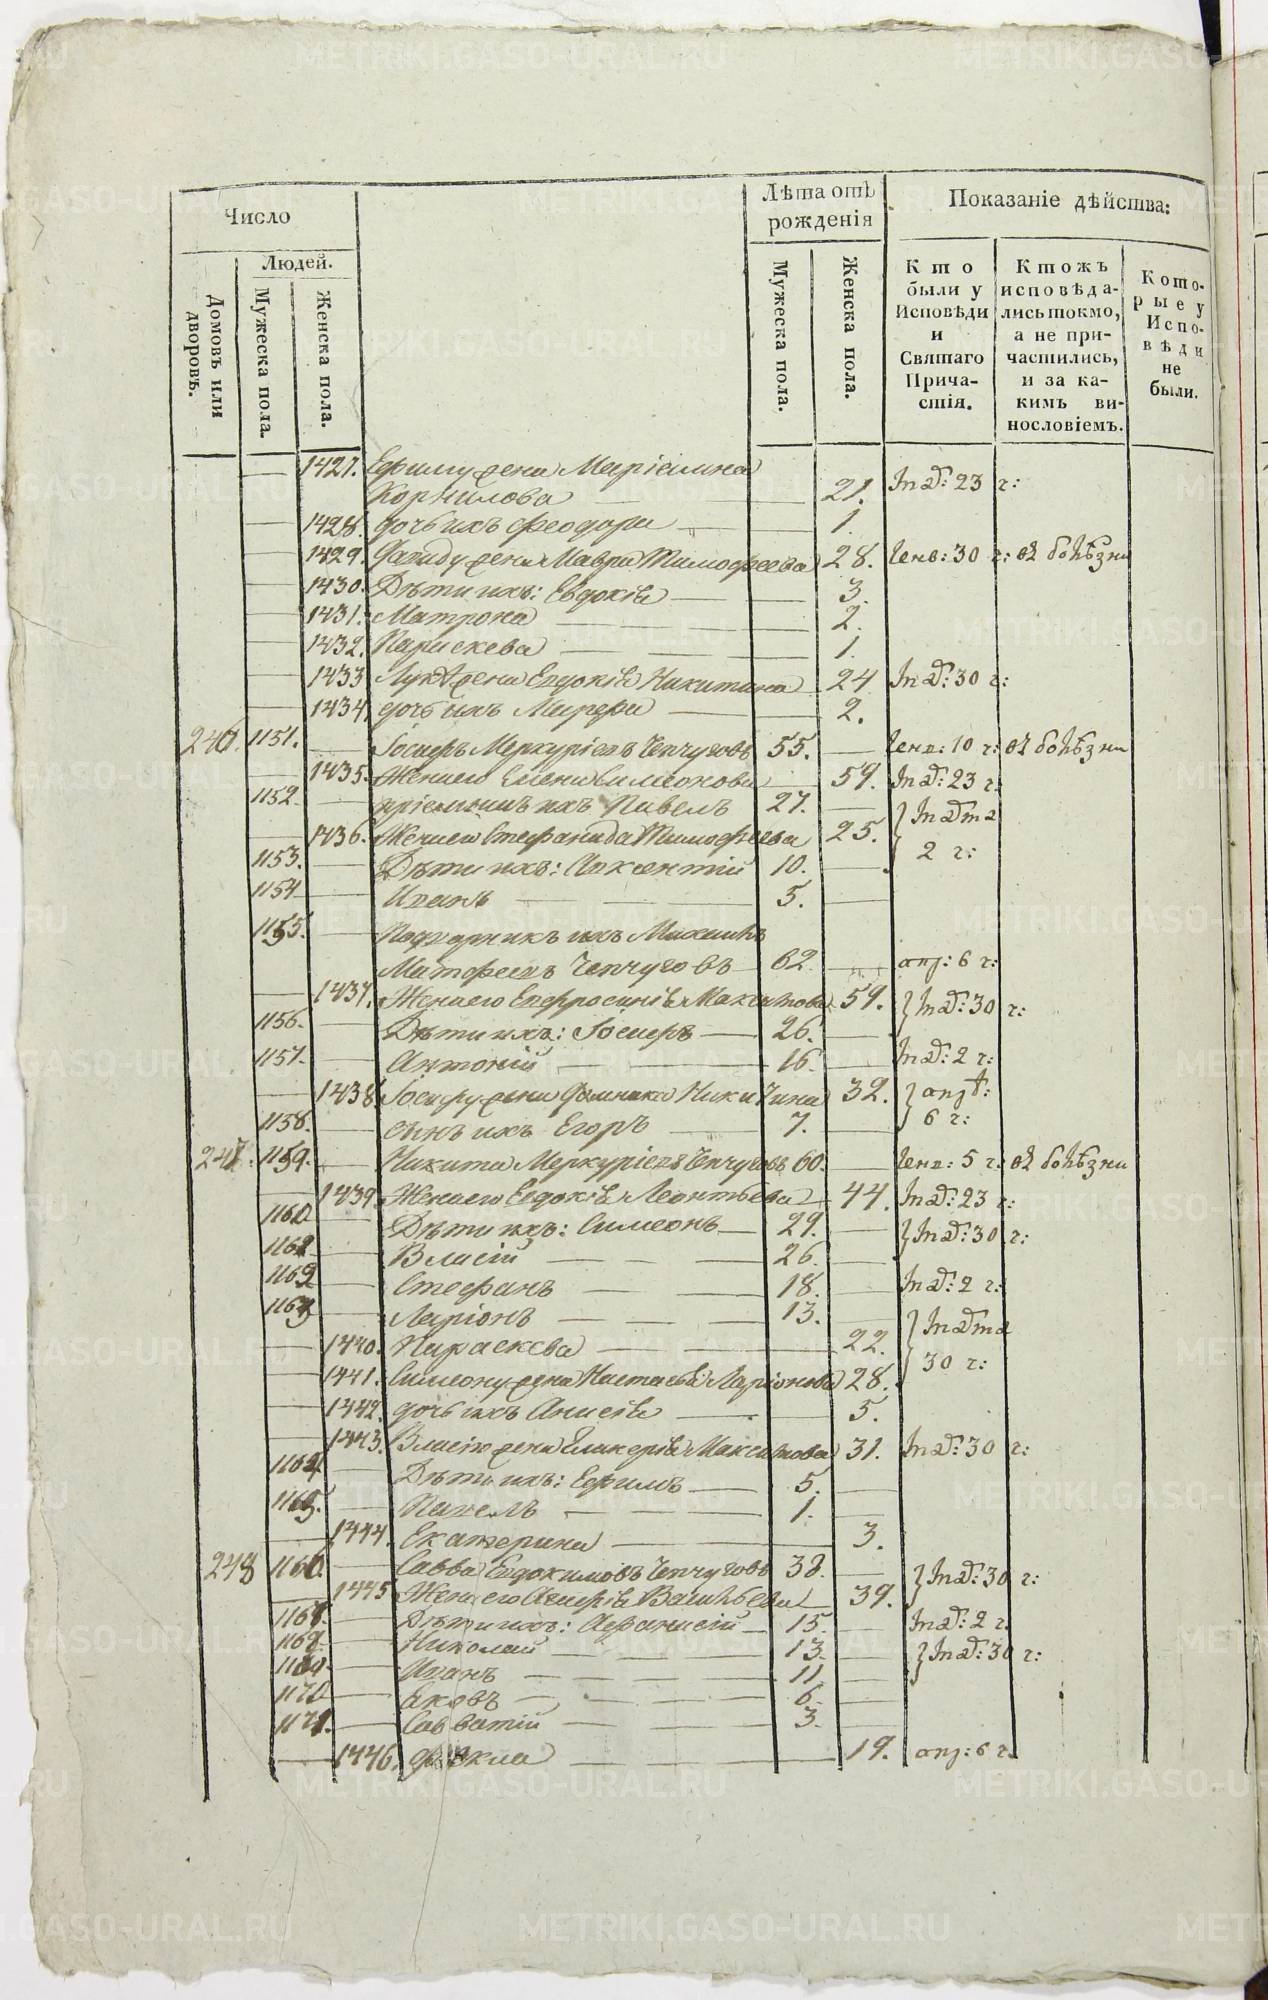 Число
Людей.
Домовъ или дворовъ.
Мужеска пола.
Женска пола.
Лѣта отъ рожденія
Мужеска пола.
Женска пола.
Показаніе дѣйства:
Кто были у Исповѣди и Святаго Причастія.
Ктожъ исповѣдались токмо, а не причастились, и за какимъ винословіемъ.
Которые у Исповѣди не были.
— 1427. Ефиму жена Маріамна
Корнилова — 21. 23 ч:
— 1428. дочь ихъ Феодора — 1.
— 1429. жена Мавра Тимофеева 28. Генв: 30 ч: въ болѣзни
— 1430. Дѣти ихъ: Евдокія — 3.
— 1431. Матрона — 2.
— 1432. Параскева — 1.
— 1433 Лукѣ жена Евдокія Никитина 24 30 ч:
— 1434. дочь ихъ — 2.
246. 1151. — Іосифъ Меркуріевъ Чепчуговъ 55. — Генв: 10 ч: въ болѣзни
— 1435. Жена его Елена Симеонова — 59. 23 ч:
1152. — пріемышъ ихъ Павелъ 27. —
— 1436. Жена его Стефанида Тимофеева 25. 2 ч:
1153. — Дѣти ихъ: 10. —
1154 — Иванъ — 5. —
1155. — ихъ Михаилъ
Матфеевъ Чепчуговъ — 62 — апр: 6 ч:
— 1437. Жена его Евфросинія Максимова 59. 30 ч:
1156. — Дѣти ихъ: Іосифъ — 26. —
1157. — Антоній — 16. — 2 ч:
— 1438. Іосифу жена Никитина 32. апр:
6 ч:
1158. — сынъ ихъ Егоръ — 7. —
247. 1159. — Никита Меркуріевъ Чепчуговъ 60. — Генв: 5 ч: въ болѣзни
— 1439. Жена его Евдокія Леонтьева — 44. 23 ч:
1160 — Дѣти ихъ: Симеонъ — 29. — 30 ч:
— Власій — 26. —
— Стефанъ — 18. — 2 ч:
— Ларіонъ — 13. —
— 1440. Параскева — 22. 30 ч:
— 1441. Симеону жена Настасья Ларіонова 28.
— 1442. дочь ихъ Анисія — 5.
— 1443. Власію жена Гликерія Максимова 31. 30 ч:
1164 — Дѣти ихъ: Ефимъ — 5. —
1165. — Павелъ — 1. —
— 1444. Екатерина — 3.
248 1166. — Савва Евдокимовъ Чепчуговъ 38. — 30 ч:
— 1445 Жена его Васильева — 39.
— Дѣти ихъ: Афанасій — 15. — 2 ч.
— Николай — 13. — 30 ч:
— Иванъ — 11 —
1170 — Яковъ — 6. —
1171. — Савватій — 3. —
— 1446. Фекла — 19. апр: 6 ч.
METRIKI.GASO-URAL.RU